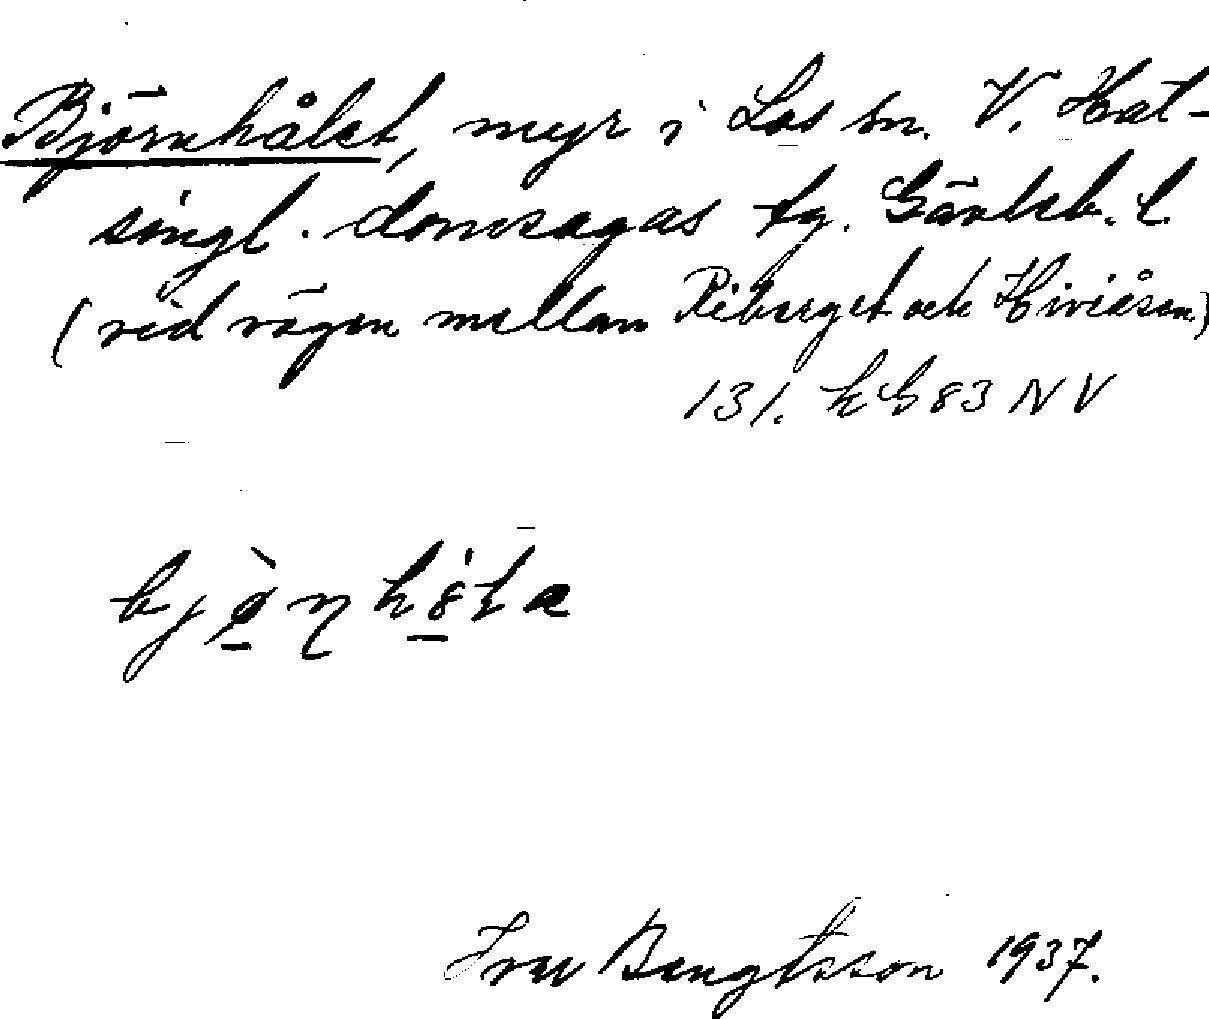 Björnhålet, myr i Los sn. V. Häl-
singl. domsagas tg. Gävleb. l.
(vid vägen mellan Riberget och Hiviåsen)
131. h G 83 NV
Ivar Bengtsson 1937.